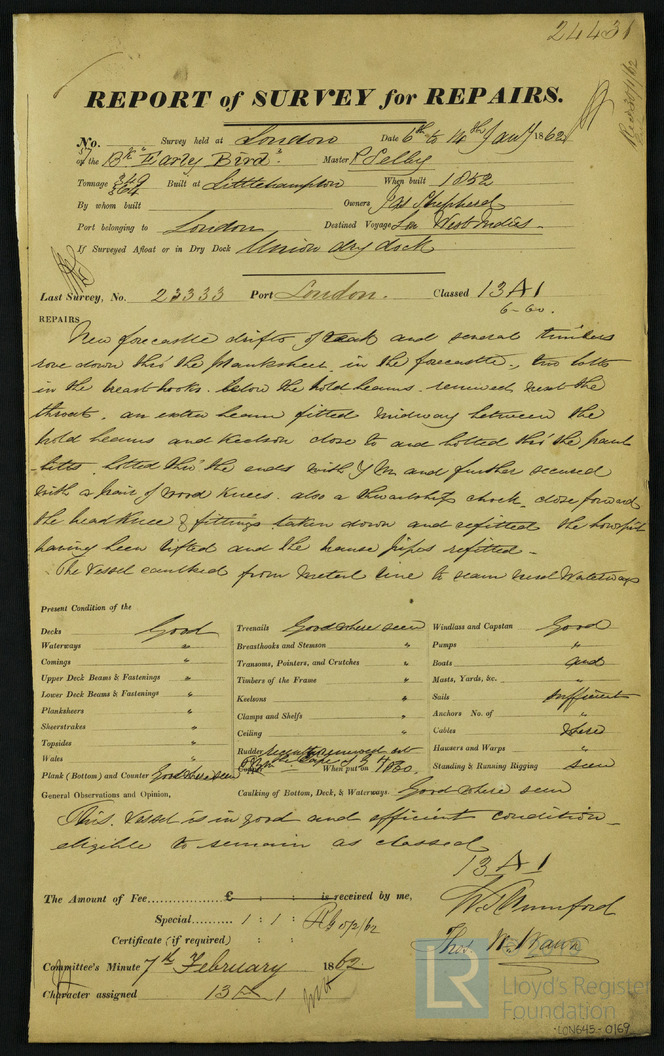 24431
REPORT of SURVEY for REPAIRS.
No. Survey held at London Date 6th to 14th Jany 1862
on the Bk "Early Bird" Master P Selby
Tonnage 349 364 Built at Littlehampton When built 1852
By whom built Owners Jas Shepherd
Port belonging to London Destined Voyage West Indies
If Surveyed Afloat or in Dry Dock Union dry dock
Last Survey, No. 23333 Port London. Classed 13 A 1
6-60.
REPAIRS
New forecastle drifts of teak and several timbers
rove down thro' the planksheer in the forecastle, two bolts
in the breasthooks below the hold beams renewed near the
throat, an extra beam fitted midway between the
hold beams and keelson close to and bolted thro' the paul
bitts, bolted thro' the ends with Y M and further secured
with a pair of wood knees. also a thwartship chock close forward
the head knee & fittings taken down and refitted the bowsprit
having been lifted and the hause pipes refitted -
The Vessel caulked from metal line to seam next Waterways
Present Condition of the
Decks Good
Waterways "
Comings "
Upper Deck Beams & Fastenings "
Lower Deck Beams & Fastenings "
Planksheers "
Sheerstrakes "
Topsides "
Wales "
Plank (Bottom) and Counter Good where seen
Treenails Good where seen
Breasthooks and Stemson "
Transoms, Pointers, and Crutches "
Timbers of the Frame "
Keelsons "
Clamps and Shelfs "
Ceiling "
Rudder
Copper When put on 4 1860.
Caulking of Bottom, Deck, & Waterways Good where seen
Windlass and Capstan Good
Pumps "
Boats and
Masts, Yards, &c. "
Sails sufficient
Anchors No. of "
Cables where
Hausers and Warps "
Standing & Running Rigging seen
General Observations and Opinion,
This Vessel is in good and efficient condition -
eligible to remain as classed
13 A 1
The Amount of Fee £ : : is received by me,
Special 1 : 1 : 5/2/62
Certificate (if required) : :
Committee's Minute 7th February 1862
Character assigned 13 A 1
LR
Lloyd's Register
Foundation
LON645-0169